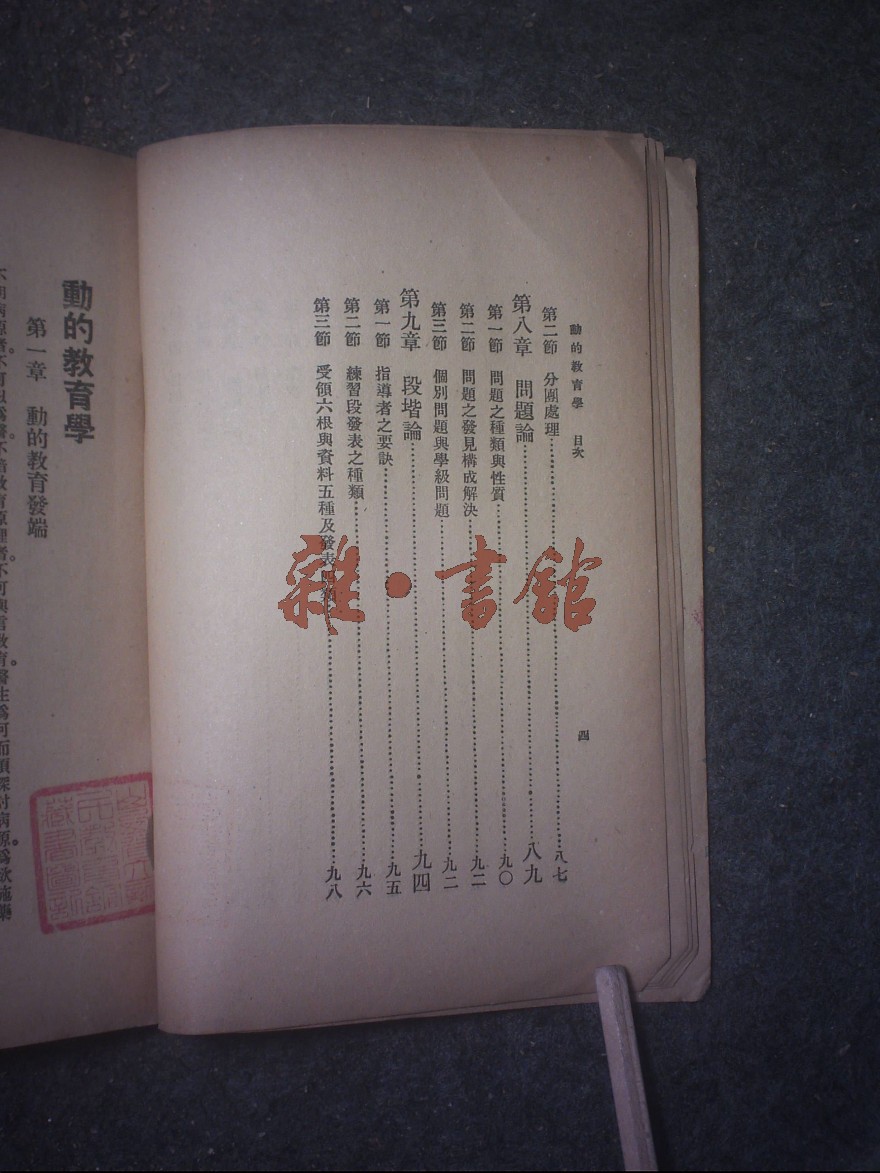 動的教育學 目次 四
第二節 分團處理 八七
第八章 問題論 八九
第一節 問題之種類與性質 九〇
第二節 問題之發見構成解決 九二
第三節 個別問題與學級問題 九二
第九章 段堦論 九四
第一節 指導者之要訣 九五
第二節 練習段發表之種類 九六
第三節 受領六根與資料五種及發表 九八
雜·書館
動的教育學
第一章 動的教育發端